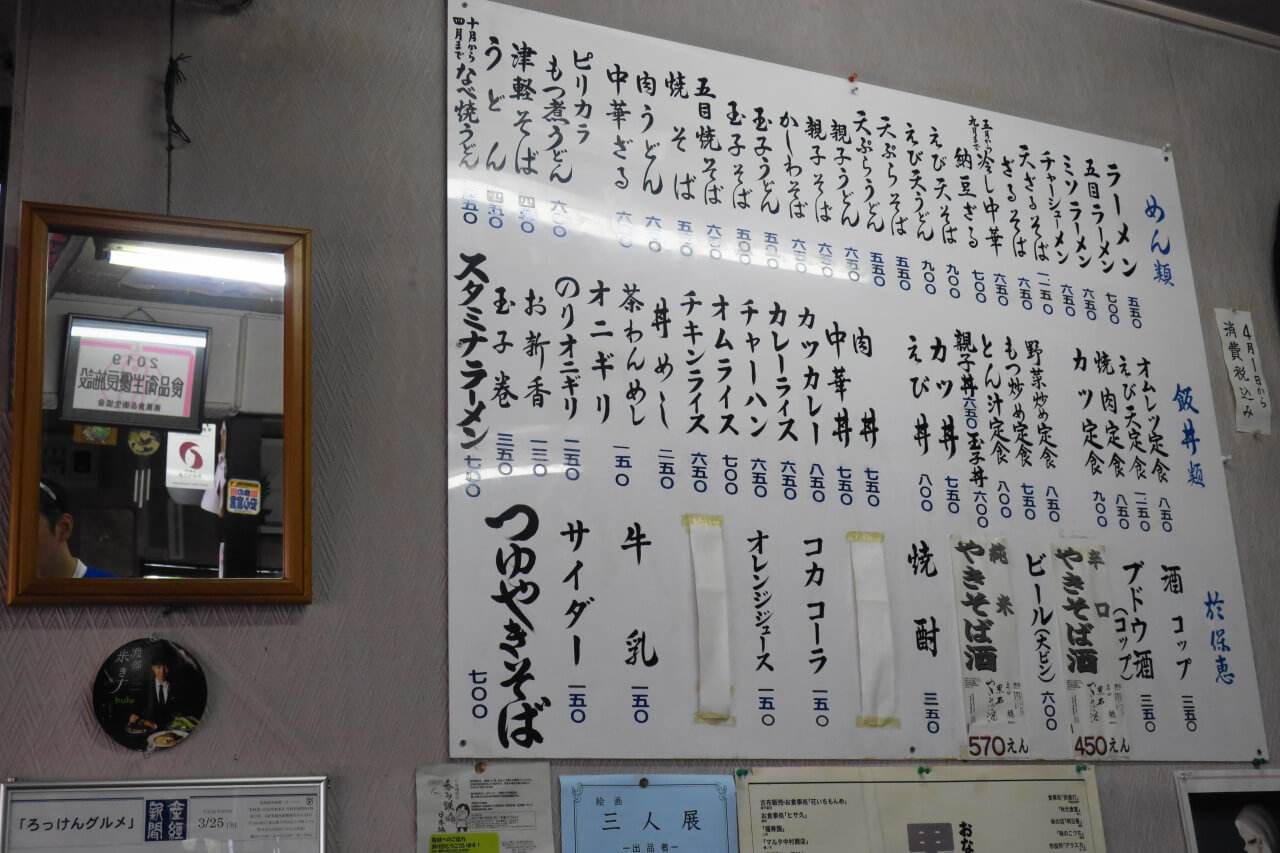 めん類
ラーメン 五五〇
五目ラーメン 七〇〇
ミソラーメン 六五〇
チャーシューメン 六五〇
天ざるそば 一一五〇
ざるそば 六五〇
五月から九月まで 冷し中華 六五〇
納豆ざる 七〇〇
えび天そば 九〇〇
えび天うどん 九〇〇
天ぷらそば 五五〇
天ぷらうどん 五五〇
親子うどん 六五〇
親子そば
かしわそば
玉子うどん
玉子そば
五目焼そば
焼そば
肉うどん
中華ざる
ピリカラもつ煮うどん
津軽そば
うどん
十月から四月まで なべ焼うどん
飯丼類
オムレツ定食 八五〇
えび天定食 一一五〇
焼肉定食 八五〇
カツ定食 九〇〇
野菜炒め定食 八五〇
もつ炒め定食 七五〇
とん汁定食 八〇〇
親子丼 六五〇 玉子丼 六〇〇
カツ丼 七五〇
えび丼 八〇〇
肉丼 七五〇
中華丼 七五〇
カツカレー 八五〇
カレーライス 六五〇
チャーハン 六五〇
オムライス 七〇〇
チキンライス 六五〇
丼めし 二五〇
茶わんめし 一五〇
オニギリ
のりオニギリ 二五〇
お新香 一三〇
玉子巻 三五〇
スタミナラーメン 七〇〇
於保恵
酒 コップ 三五〇
ブドウ酒(コップ) 三五〇
辛口 やきそば酒 450えん
ビール(大ビン) 六〇〇
純米 やきそば酒 570えん
焼酎 三五〇
コカコーラ 一五〇
オレンジジュース 一五〇
牛乳 一五〇
サイダー 一五〇
つゆやきそば 七〇〇
4月1日から
消費税込み
2019
食品衛生優良施設
hulu
「ろっけんグルメ」
産経新聞
THE SANKEI SHIMBUN
3/25
絵画
三人展
ー出品者ー
古布販売・お食事処「花いちもんめ」
お食事処「ヒサ久」
「マルタ中村商店」